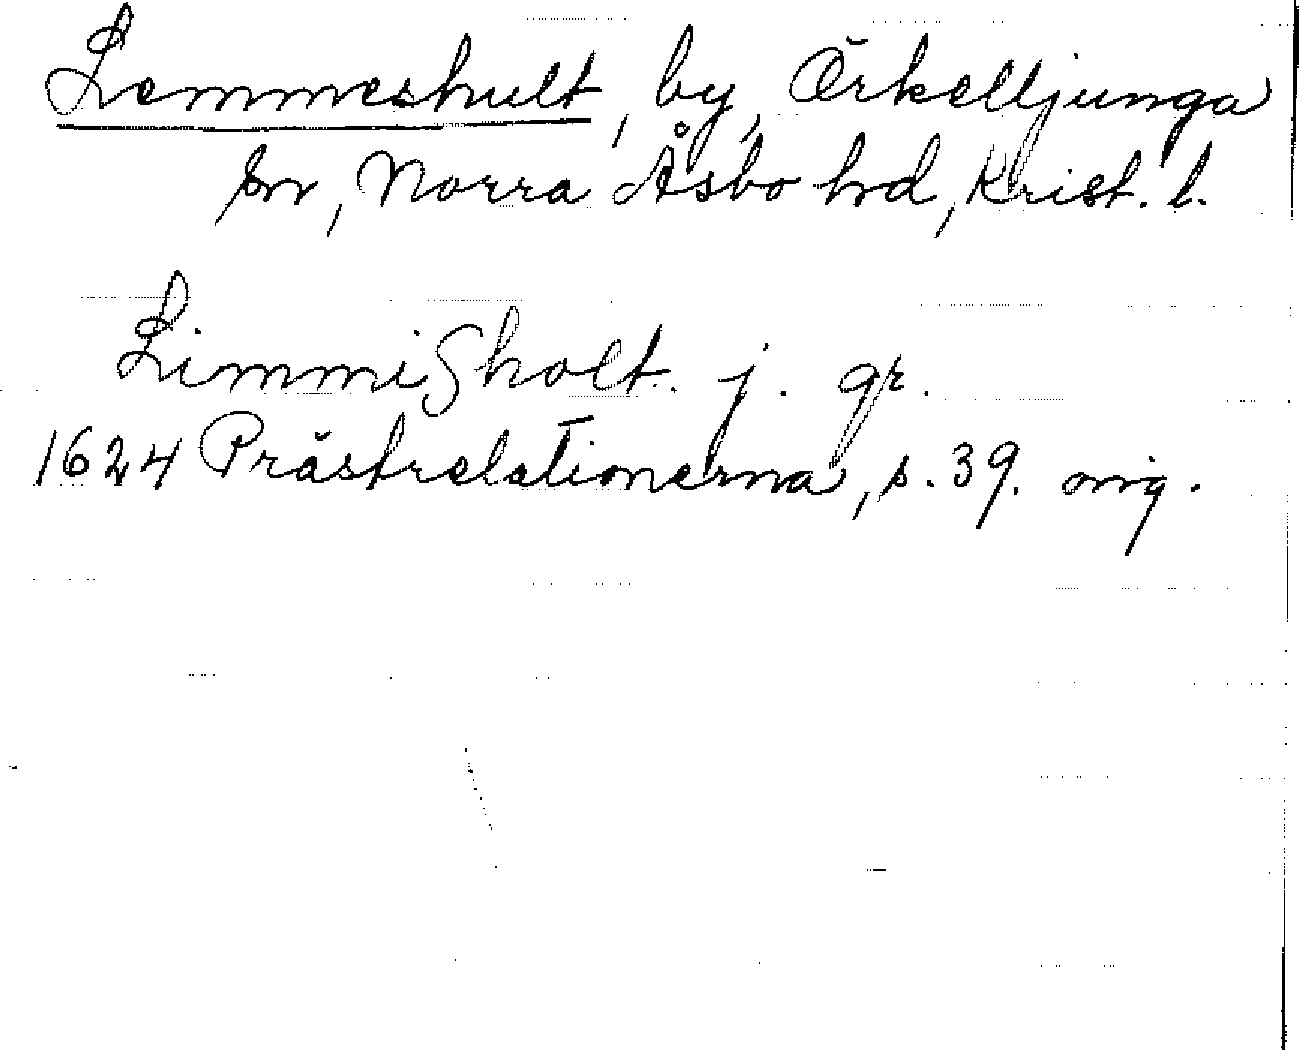 Lemmeshult, by, Örkelljunga
sn, Norra Åsbo hd, Krist. l.
LimmiSholt. j. gr.
1624 Prästrelationerna, s. 39. orig.